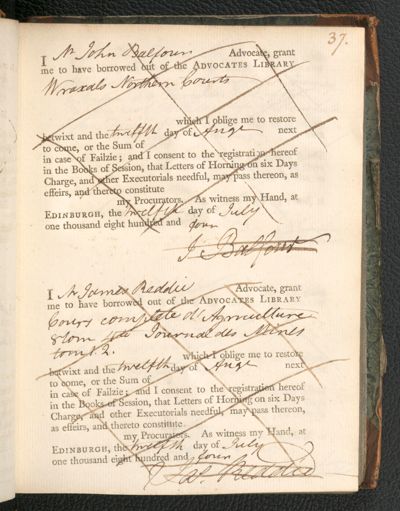 37.
I Mr John Balfour Advocate, grant
me to have borrowed out of the ADVOCATES LIBRARY
Wraxals Northern Courts
which I oblige me to restore
betwixt and the twelfth day of Augt next
to come, or the Sum of
in case of Failzie; and I consent to the registration hereof
in the Books of Session, that Letters of Horning on six Days
Charge, and other Executorials needful, may pass thereon, as
effeirs, and thereto constitute
my Procurators. As witness my Hand, at
EDINBURGH, the twelfth day of July
one thousand eight hundred and four
Jo Balfour
I Mr James Reddie Advocate, grant
me to have borrowed out of the ADVOCATES LIBRARY
Cours complete d'Agriculture
8 tom 4to Journal des Mines
tom. 2.
which I oblige me to restore
betwixt and the twelfth day of Augt next
to come, or the Sum of
in case of Failzie; and I consent to the registration hereof
in the Books of Session, that Letters of Horning on six Days
Charge, and other Executorials needful, may pass thereon,
as effeirs, and thereto constitute
my Procurators. As witness my Hand, at
EDINBURGH, the twelfth day of July
one thousand eight hundred and four
Jas. Reddie